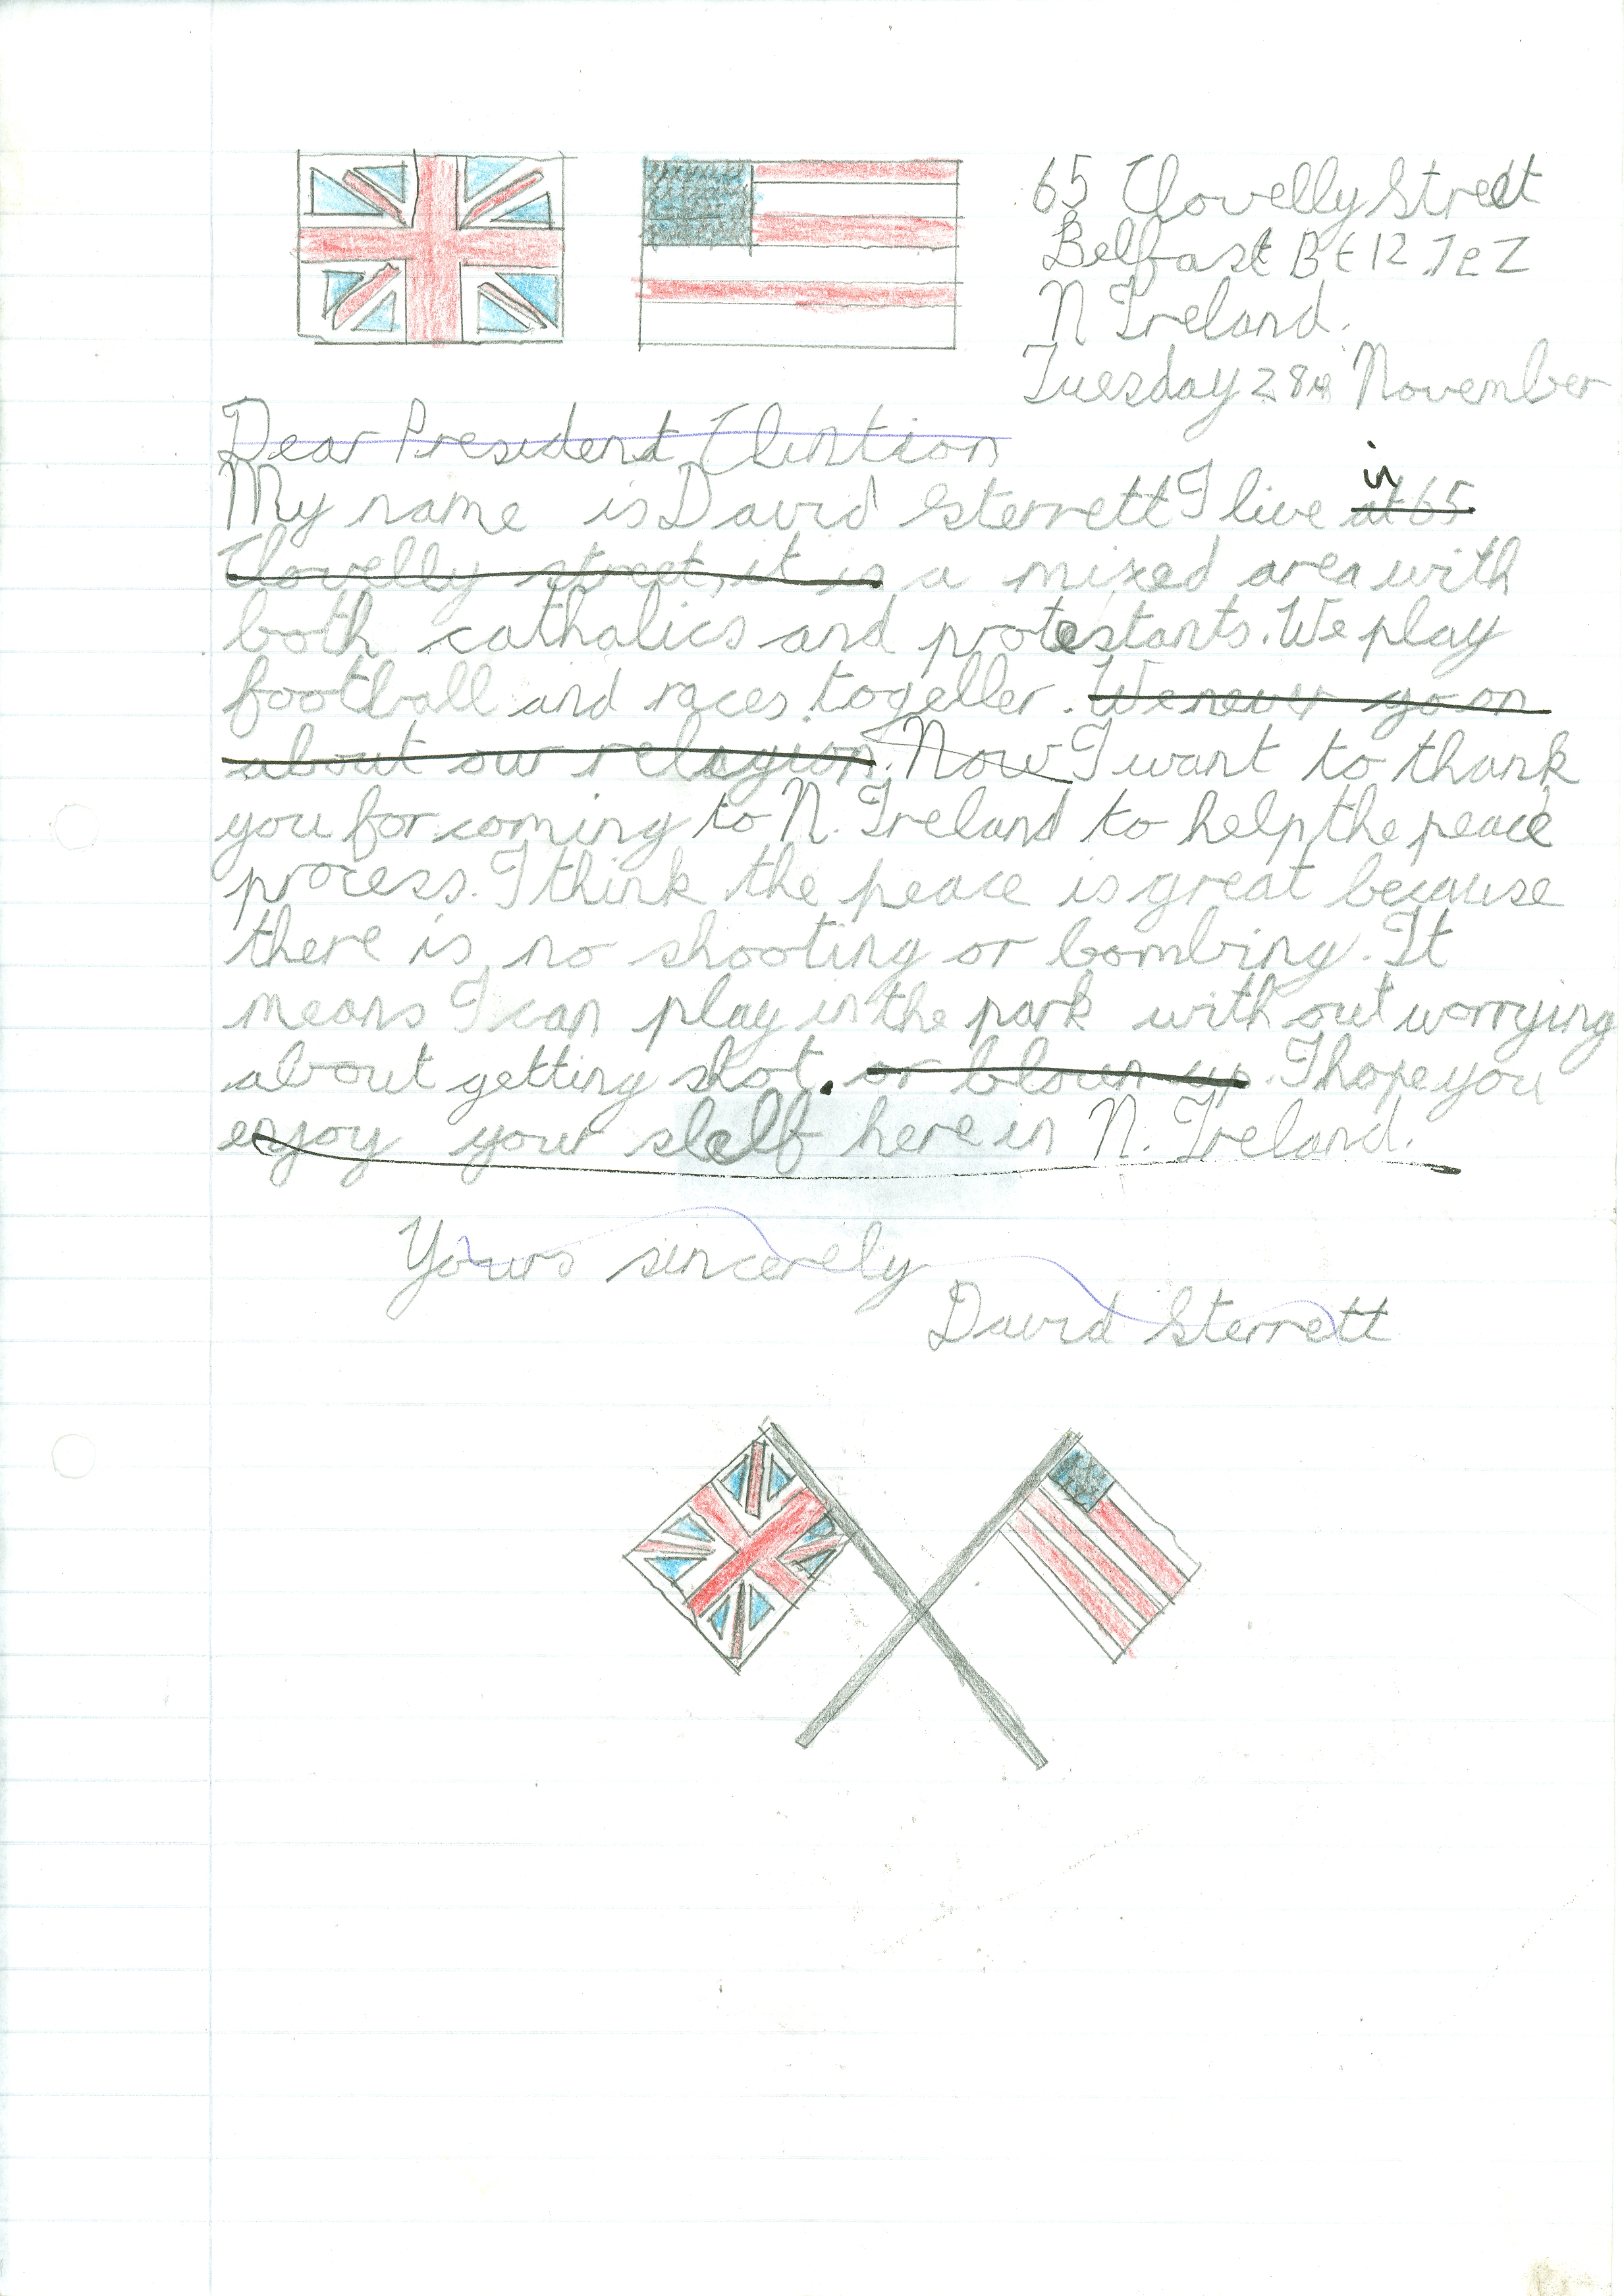 65 Clovelly Street
Belfast Bt 12 7eZ
N Ireland.
Tuesday 28th November
Dear President Clintion
My name is David Sterrett I live at 65 in
Clovelly street, it is a mixed area with
both cathalics and protestants. We play
football and races togeller. We never go on
about our relagion. Now I want to thank
you for coming to N. Ireland to help the peace
process. I think the peace is great because
there is no shooting or bombing. It
means I can play in the park with out worrying
about getting shot. or blown up. I hope you
enjoy your slelf here in N. Ireland.
Yours sincerely
David Sterrett